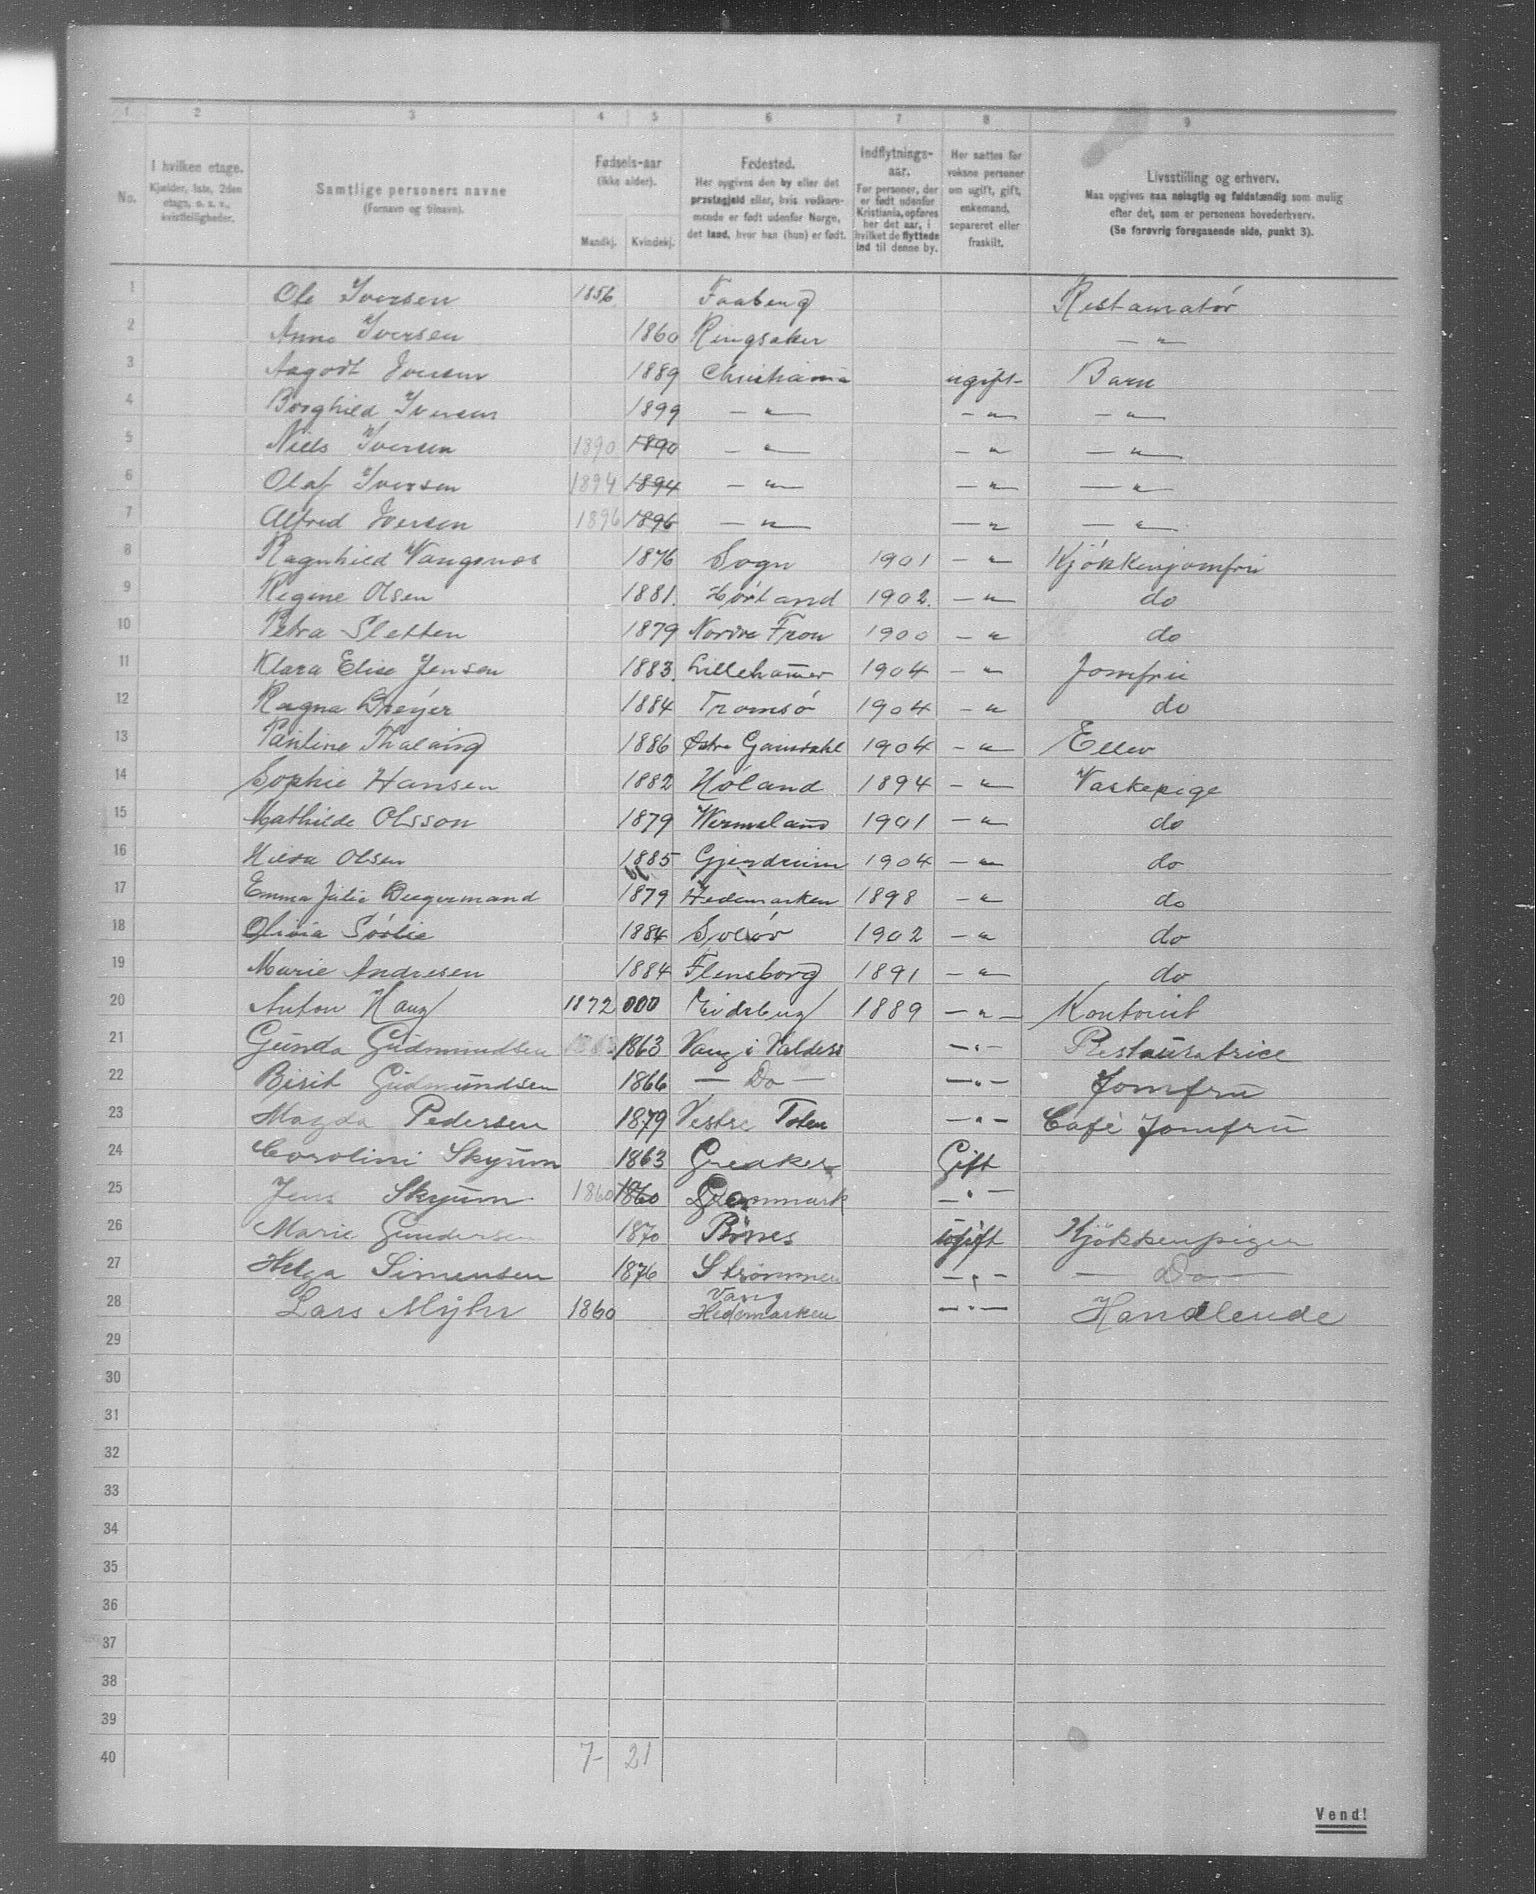 1 2 3 4 5 6 7 8 9
No.
I hvilken etage.
Kjælder, 1ste, 2den
etage, o. s. v.,
kvistleiligheder.
Samtlige personers navne
(Fornavn og tilnavn).
Fødsels-aar
(ikke alder).
Mandkj. Kvindekj.
Fødested.
Her opgives den by eller det
præstegjeld eller, hvis vedkom-
mende er født udenfor Norge,
det land, hvor han (hun) er født.
Indflytnings-
aar.
For personer, der
er født udenfor
Kristiania, opføres
her det aar, i
hvilket de flyttede
ind til denne by.
Her sættes for
voksne personer
om ugift, gift,
enkemand,
separeret eller
fraskilt.
Livsstilling og erhverv.
Maa opgives saa nøiagtig og fuldstændig som mulig
efter det, som er personens hovederhverv.
(Se forøvrig foregaaende side, punkt 3).
1 Ole Iversen 1856 Faaberg Restauratør
2 Anna Iversen 1860 Ringsaker — " —
3 Aagodt Iversen 1889 Christiania ugift Barn
4 Borghild Iversen 1899 — " — — " — " —
5 Niels Iversen 1890 1890 — " — — " — " —
6 Olaf Iversen 1894 1894 — " — — " — " —
7 Alfred Iversen 1896 1896 — " — — " — " —
8 Ragnhild Vangsnes 1876 Sogn 1901 — " Kjøkkenjomfru
9 Regine Olsen 1881. 1902. — " do
10 Petra Sletten 1879 Nordre Fron 1900 — " do
11 Klara Elise Jensen 1883. Lillehamer 1904 — " Jomfru
12 Ragna Dreyer 1884 Tromsø 1904 — " do
13 Pauline 1886 Østre 1904 — " Elev
14 Sophie Hansen 1882 Høland 1894 — " Vaskepige
15 Mathilde Olsson 1879 Wermeland 1901 — " do
16 Hilda Olsen 1885 Gjerdrum 1904 — " do
17 Emma Julie 1879 Hedemarken 1898 — " do
18 Olivia Sørlie 1884 Solør 1902 — " do
19 Marie Andresen 1884 Flensborg 1891 — " do
20 Anton Haug 1872 000 Eidsberg 1889 — " — Kontorist
21 Gunda Gudmundsen 1863 1863 Vang i Valders — " — Restauratrice
22 Birit Gudmundsen 1866 — Do — — " — Jomfru
23 Magda Pedersen 1879 Vestre Toten — " — Café Jomfru
24 Carolini Skyum 1863 Greaker Gift
25 Jens Skyum 1860 1860 Danmark — " —
26 Marie Gundersen 1870 ugift Kjøkkenpiger
27 Helga Simensen 1876 Strømmen — " — — Do —
28 Lars Myhr 1860 Vang
Hedemarken — " — Handlende
29
30
31
32
33
34
35
36
37
38
39
40 7- 21
Vend!